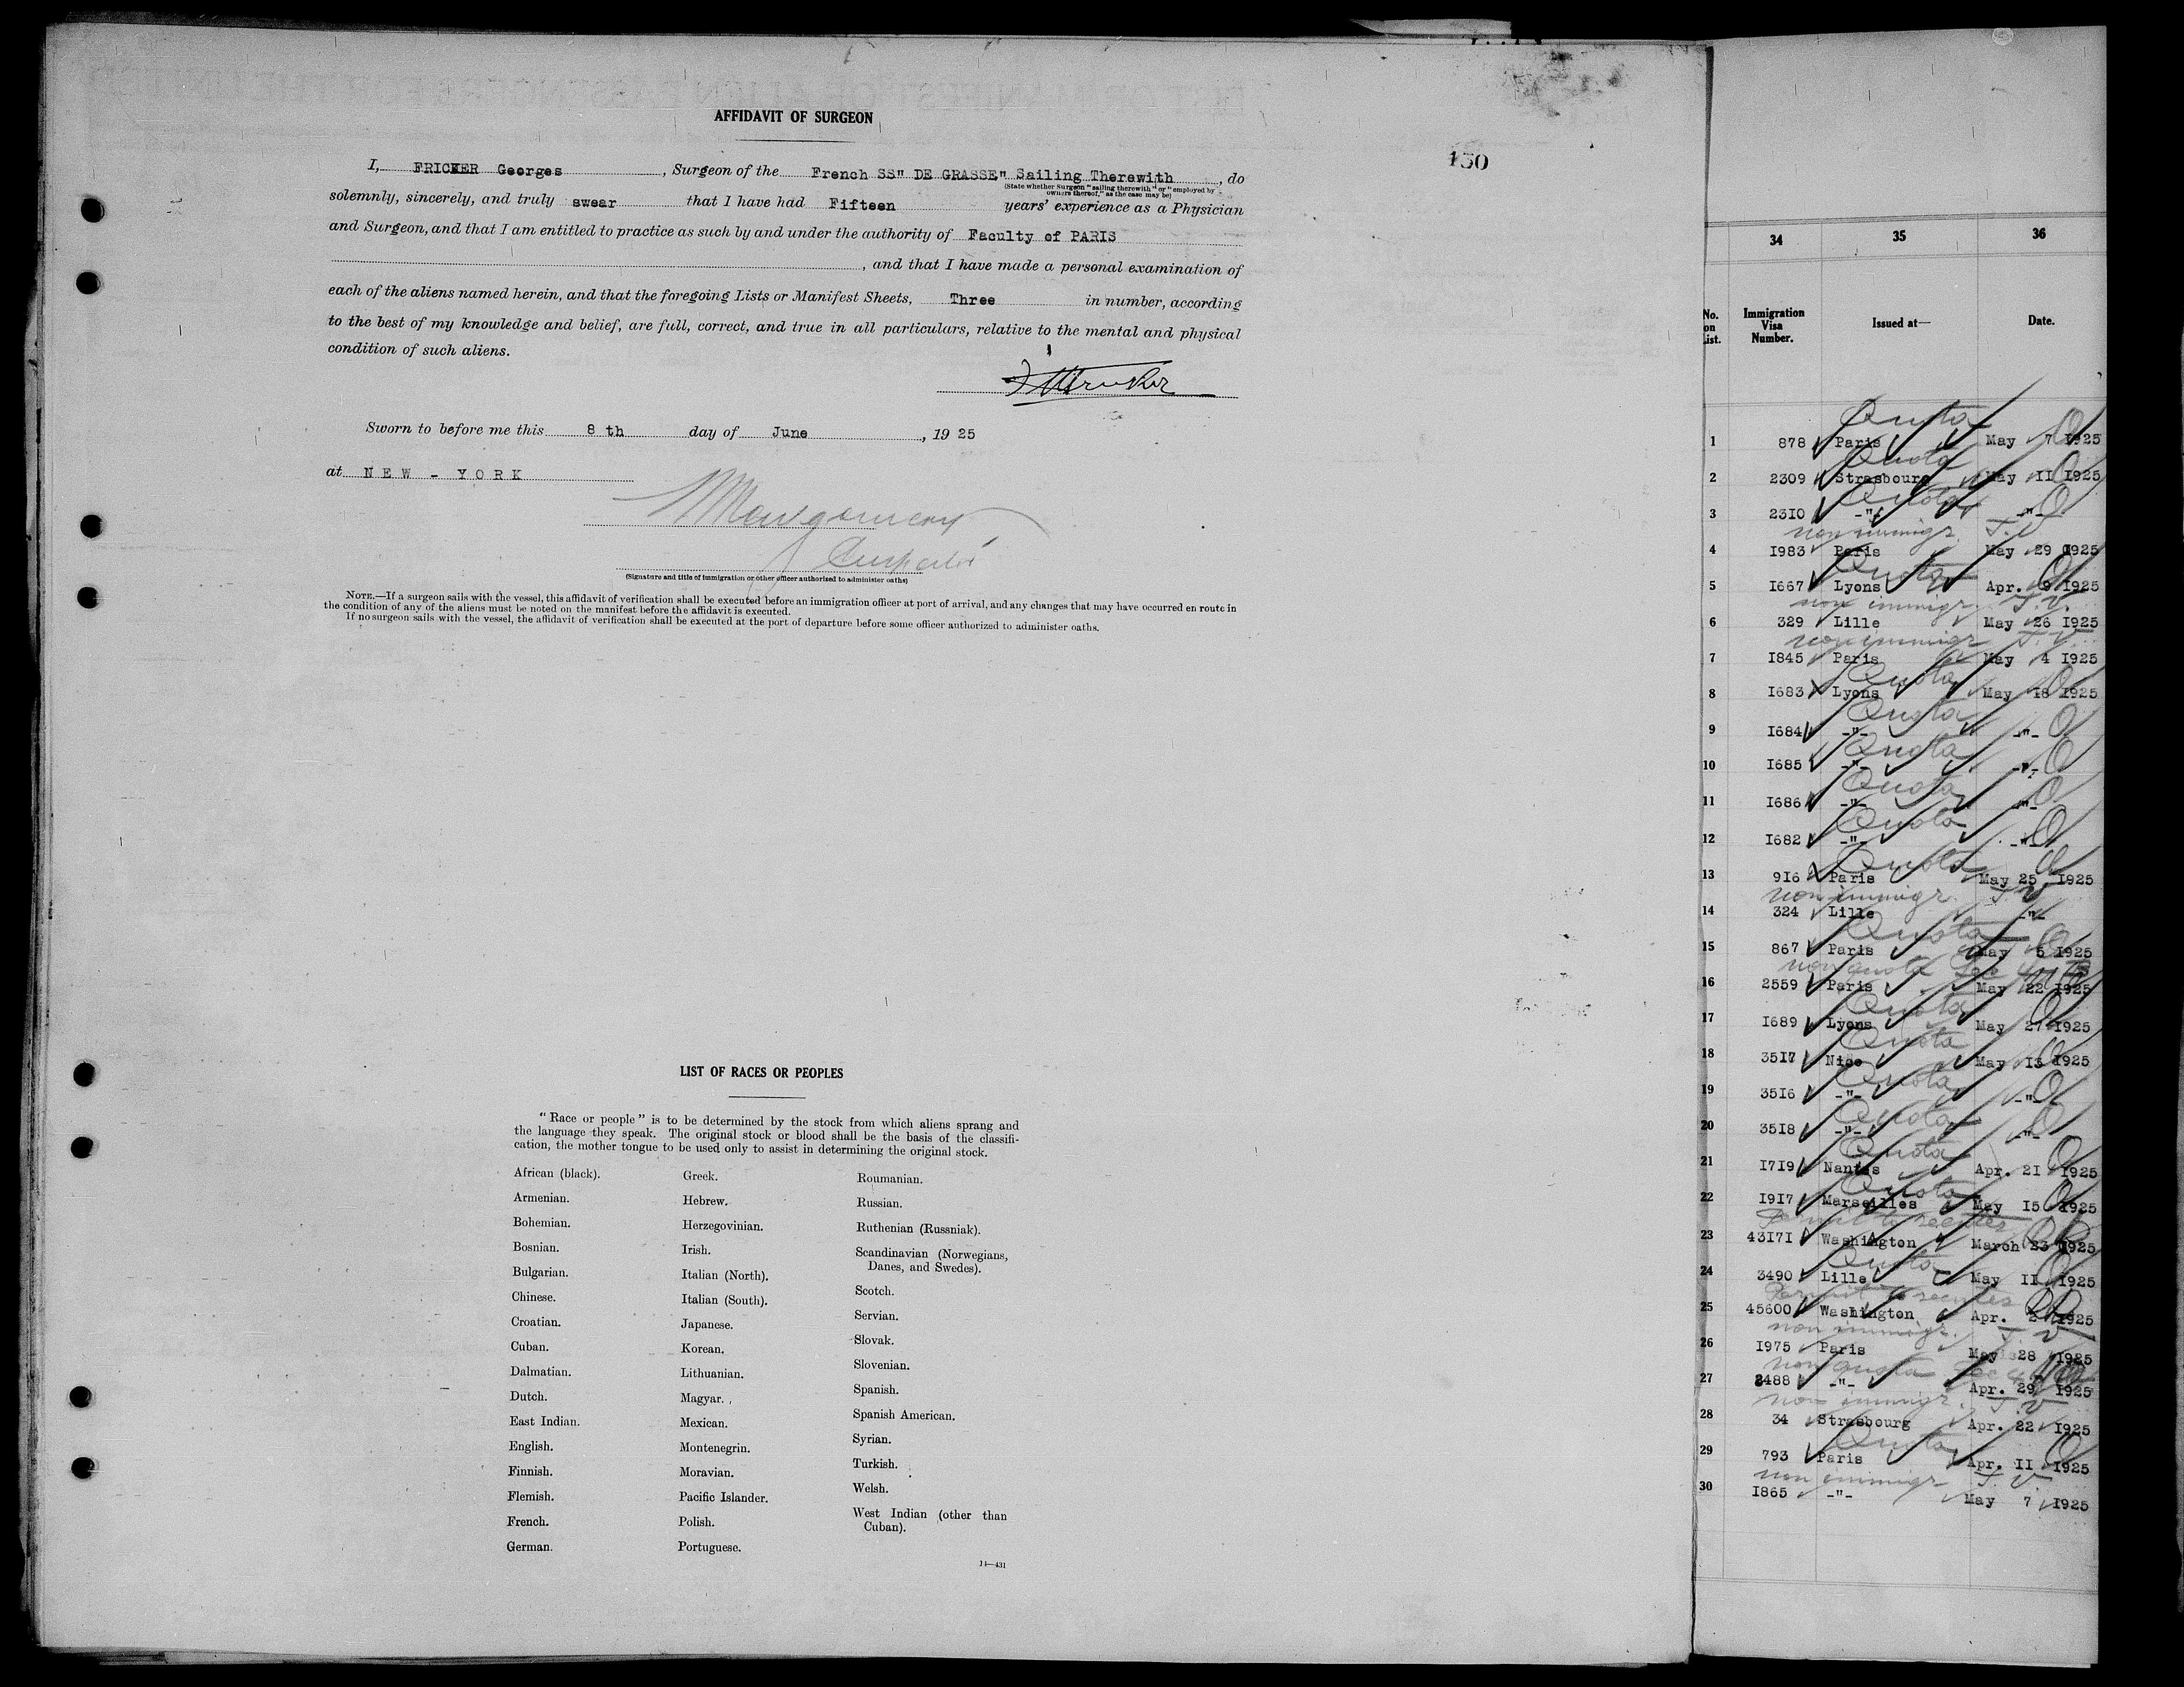 AFFIDAVIT OF SURGEON
130
I, FRICKER Georges, Surgeon of the French SS" DE GRASSE" Sailing Therewith, do
(State whether Surgeon "sailing therewith" or "employed by owners thereof," as the case may be)
solemnly, sincerely, and truly swear that I have had Fifteen years' experience as a Physician
and Surgeon, and that I am entitled to practice as such by and under the authority of Faculty of PARIS
, and that I have made a personal examination of
each of the aliens named herein, and that the foregoing Lists or Manifest Sheets, Three in number, according
to the best of my knowledge and belief, are full, correct, and true in all particulars, relative to the mental and physical
condition of such aliens.
Sworn to before me this 8 th day of June, 19 25
at NEW - YORK
Montgomery
(Signature and title of immigration or other officer authorized to administer oaths)
NOTE.—If a surgeon sails with the vessel, this affidavit of verification shall be executed before an immigration officer at port of arrival, and any changes that may have occurred en route in
the condition of any of the aliens must be noted on the manifest before the affidavit is executed.
If no surgeon sails with the vessel, the affidavit of verification shall be executed at the port of departure before some officer authorized to administer oaths.
LIST OF RACES OR PEOPLES
"Race or people" is to be determined by the stock from which aliens sprang and
the language they speak. The original stock or blood shall be the basis of the classifi-
cation, the mother tongue to be used only to assist in determining the original stock.
African (black).
Armenian.
Bohemian.
Bosnian.
Bulgarian.
Chinese.
Croatian.
Cuban.
Dalmatian.
Dutch.
East Indian.
English.
Finnish.
Flemish.
French.
German.
Greek.
Hebrew.
Herzegovinian.
Irish.
Italian (North).
Italian (South).
Japanese.
Korean.
Lithuanian.
Magyar.
Mexican.
Montenegrin.
Moravian.
Pacific Islander.
Polish.
Portuguese.
Roumanian.
Russian.
Ruthenian (Russniak).
Scandinavian (Norwegians,
Danes, and Swedes).
Scotch.
Servian.
Slovak.
Slovenian.
Spanish.
Spanish American.
Syrian.
Turkish.
Welsh.
West Indian (other than
Cuban).
14—431
34 35 36
No. on List. Immigration Visa Number. Issued at— Date.
Quota
1 878 Paris May 7 1925
Quota
2 2309 Strasbourg May II 1925
Quota
3 23I0 -"- -"-
non immigr. T.V
4 I983 Paris May 29 1925
Quota
5 I667 Lyons Apr. 9 1925
non immigr. T.V.
6 329 Lille May 26 I925
non immigr T.V.
7 I845 Paris May 4 I925
Quota
8 I683 Lyons May I8 I925
Quota
9 I684 -"- -"-
Quota
10 I685 -"- -"-
Quota
11 I686 -"- -"-
Quota
12 I682 -"- -"-
Quota
13 9I6 Paris May 25 I925
non immigr. T.V
14 324 Lille -"-
Quota
15 867 Paris May 5 I925
non quota Sec 4
16 2559 Paris May 22 I925
Quota
17 I689 Lyons May 27 I925
Quota
18 35I7 Nice May I3 I925
Quota
19 35I6 -"- -"-
Quota
20 35I8 -"- -"-
Quota
21 I7I9 Nantes Apr. 2I I925
Quota
22 I9I7 Marseilles May I5 I925
Permit to reenter
23 43I7I Washington March 23 I925
Quota
24 3490 Lille May II I925
Permit to reenter
25 45600 Washington Apr. 2 I925
non immigr. T.V
26 I975 Paris May 28 I925
non quota Sec 4
27 2488 -"- Apr. 29 I925
non immigr. T.V
28 34 Strasbourg Apr. 22 I925
Quota
29 793 Paris Apr. II I925
non immigr T.V
30 I865 -"- May 7 I925